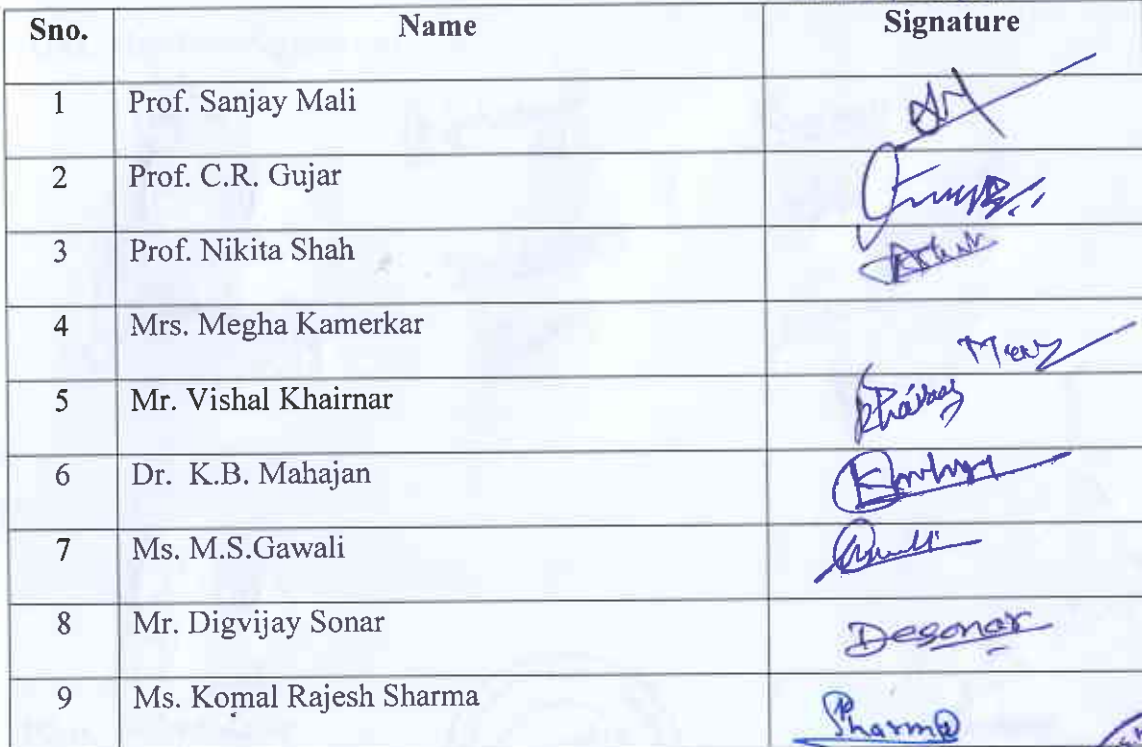 Sno. Name Signature
1 Prof. Sanjay Mali
2 Prof. C.R. Gujar
3 Prof. Nikita Shah
4 Mrs. Megha Kamerkar
5 Mr. Vishal Khairnar
6 Dr. K.B. Mahajan
7 Ms. M.S.Gawali
8 Mr. Digvijay Sonar Desonar
9 Ms. Komal Rajesh Sharma Sharma